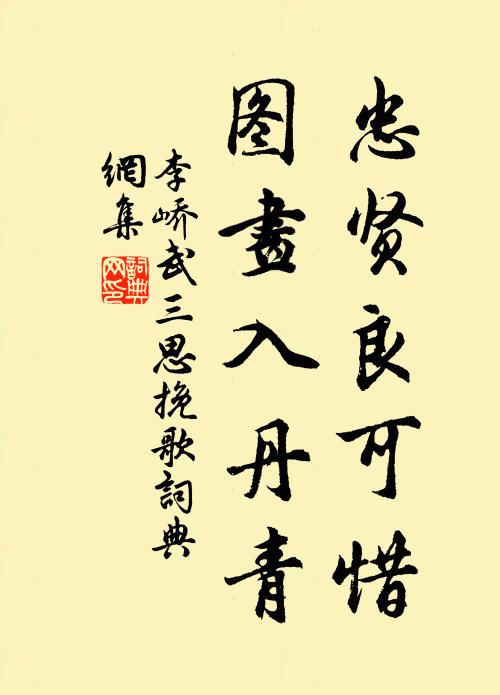 忠贤良可惜
图畫入丹青
李峤武三思挽歌詞典
網集
詞典
网印